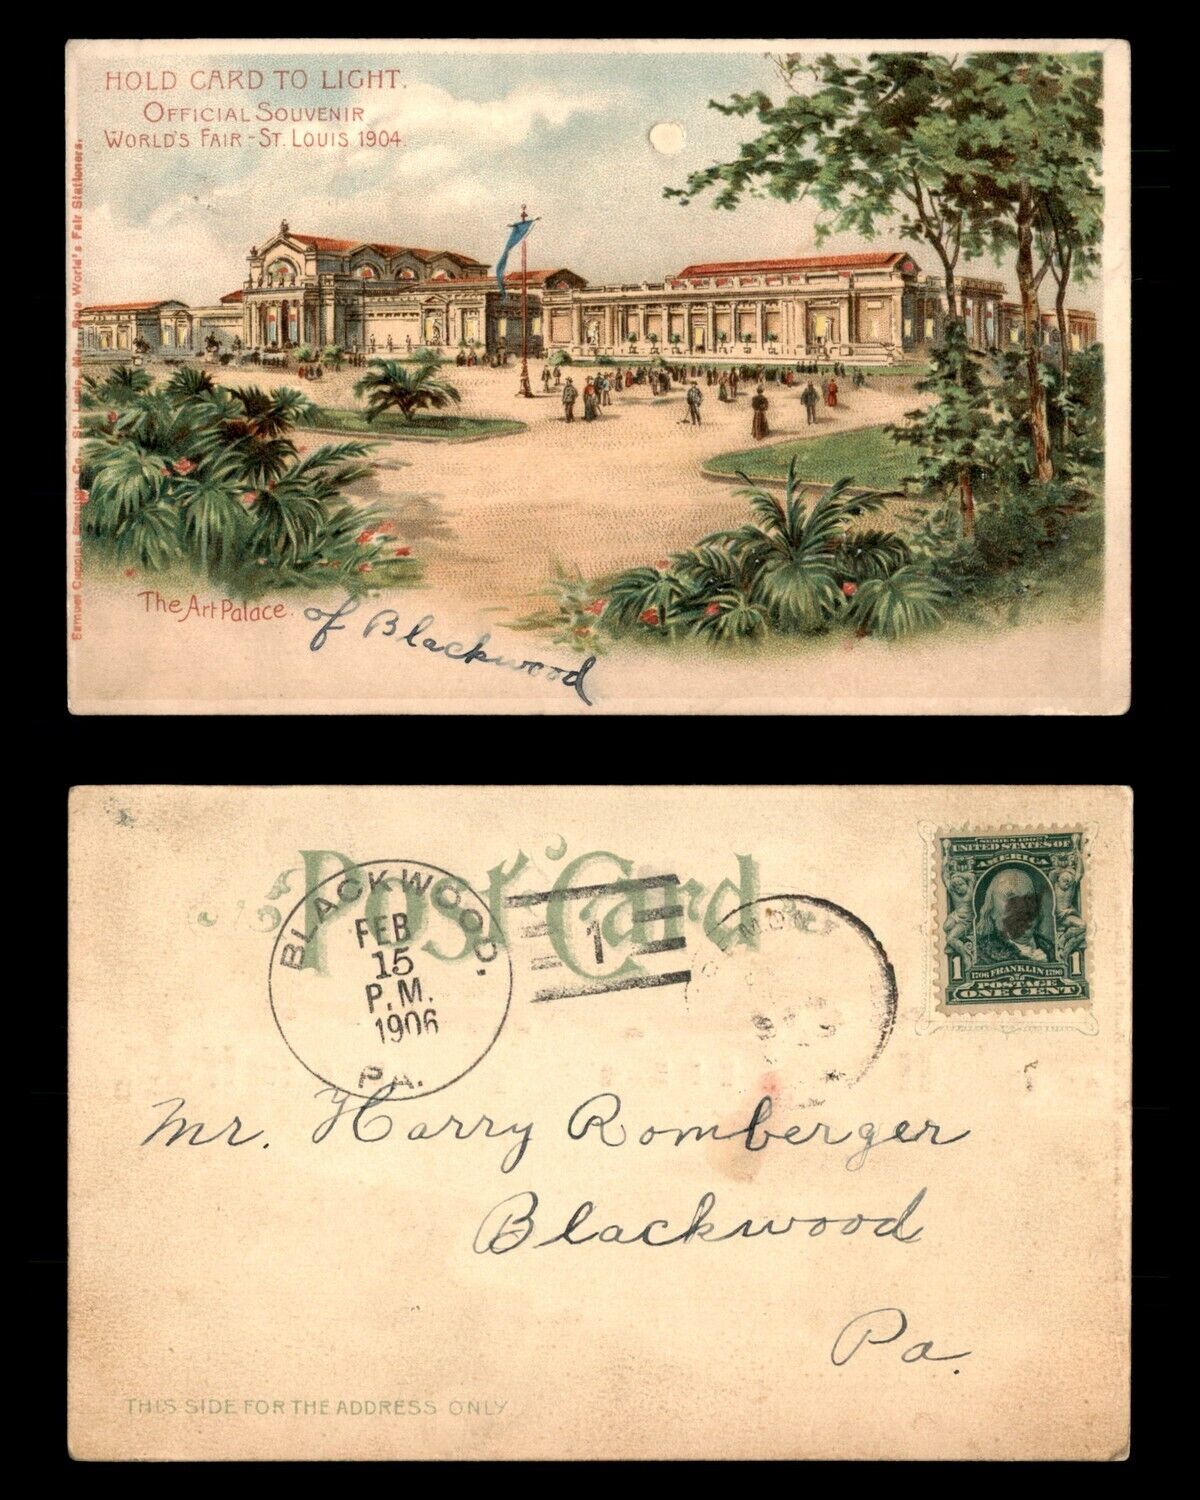 HOLD CARD TO LIGHT.
OFFICIAL SOUVENIR
WORLD'S FAIR - ST. LOUIS 1904.
Samuel Cupples Envelope Co., St. Louis, Mo., Sole World's Fair Stationers.
The Art Palace. of Blackwood
Post Card
BLACKWOOD.
FEB
15
P.M.
1906
PA.
1
SERIES 1902
UNITED STATES OF
AMERICA
1706 FRANKLIN 1790
1 1
POSTAGE
ONE CENT
Mr. Harry Romberger
Blackwood
Pa.
THIS SIDE FOR THE ADDRESS ONLY